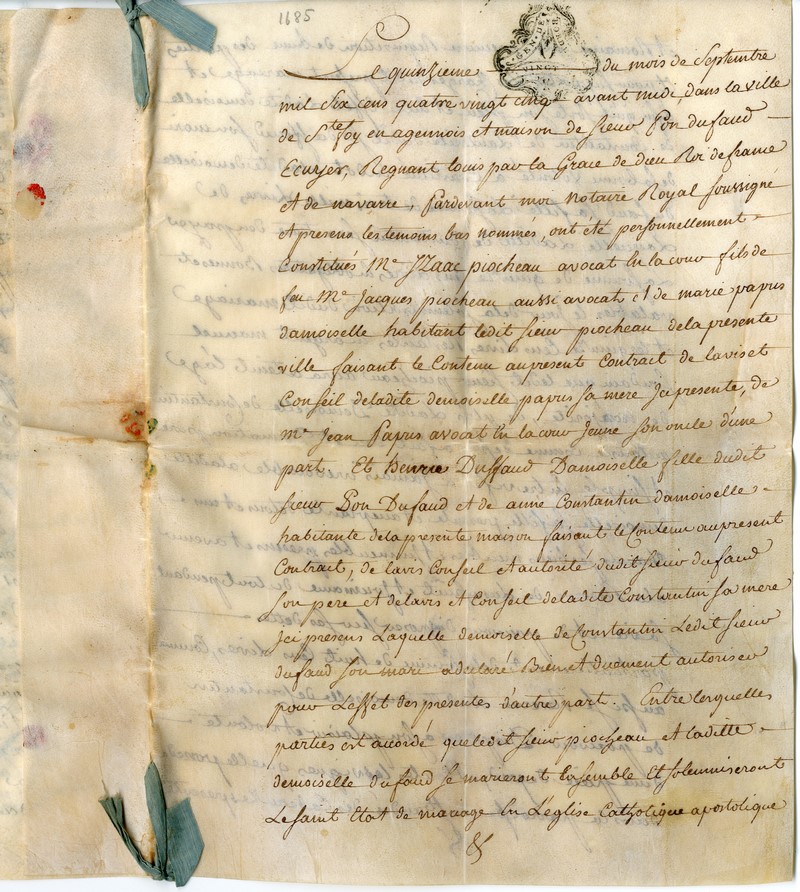 1685
GEN. DE BORD
VINGT
Le quinzieme du mois de Septembre
mil Six cens quatre vingt cinq avant midi, dans la ville
de Ste foy en agennois et maison de sieur Pon dufaud
Ecuyer, Regnant louis par la Grace de dieu Roi de france
et de navarre, Pardevant moi Notaire Royal soussigné
et presens les temoins bas nommés, ont été personnellement
Constitués Me JZaac piocheau avocat En la cour fils de
feu Me Jacques piocheau aussi avocat et de marie papus
damoiselle habitant ledit sieur piocheau de la presente
ville faisant le Contenu au present Contrait de lavis et
Conseil deladite demoiselle papus sa mere Jci presente, de
Me Jean Papus avocat En la cour Jeune son oncle d'une
part. Et henrie Duffaud Damoiselle fille dudit
sieur Pon Dufaud et de anne Constantin damoiselle
habitante dela presente maison faisant le Contenu au present
Contrait, de lavis Conseil et autorité dudit sieur du faud
son pere et de lavis et Conseil deladite Constantin sa mere
Jci presens Laquelle demoiselle de Constantin Ledit sieur
dufaud son mari a declaré Bien et duement autoriser
pour Leffet des presentes d'autre part. Entre lesquelles
parties est accordé que ledit sieur piocheau et laditte
demoiselle dufaud se marieront Ensemble Et solemniseront
Le saint Etat de mariage En L'eglise Catholique apostolique
&